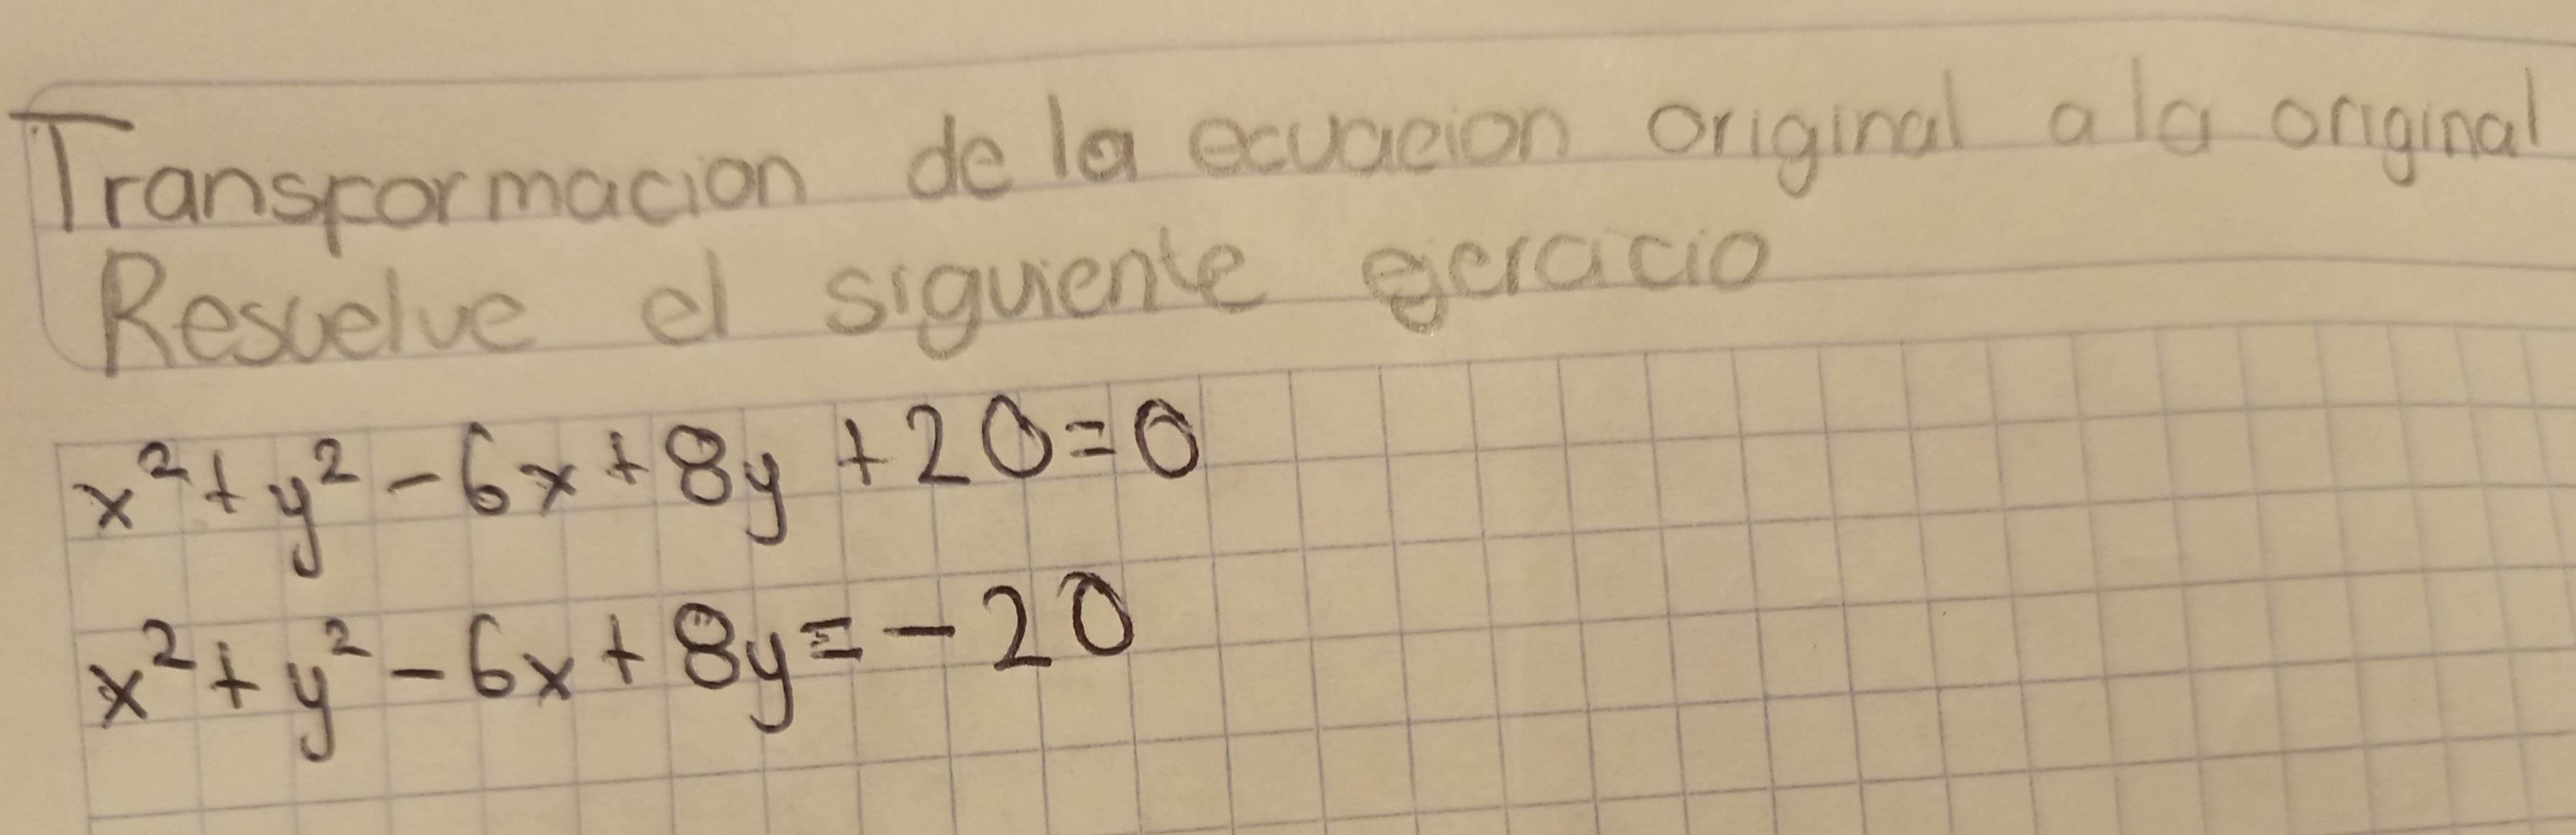 Transformacion de la ecuacion original a la original
Resuelve el siguiente ejercicio
x² + y² - 6x + 8y + 20 = 0
x² + y² - 6x + 8y = - 20